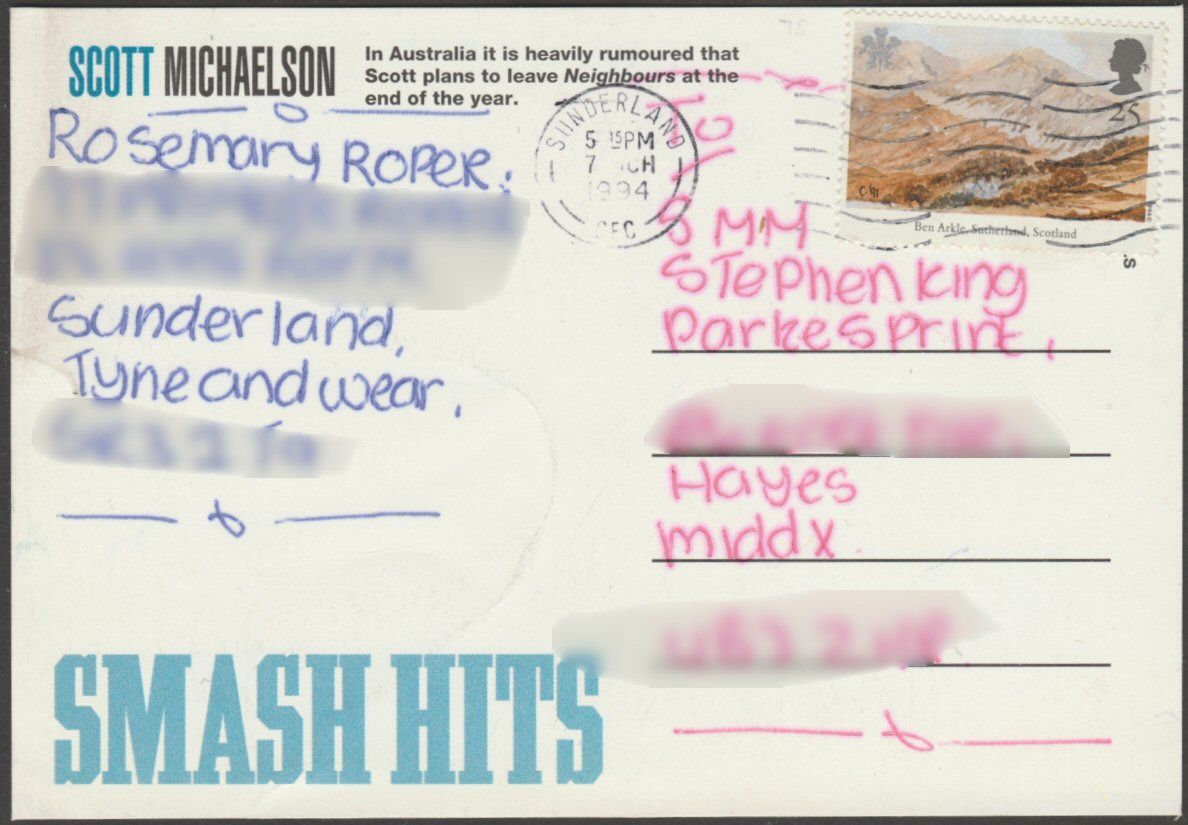 SCOTT MICHAELSON
In Australia it is heavily rumoured that
Scott plans to leave Neighbours at the
end of the year.
Rosemary Roper.
Sunderland,
Tyne and wear.
SMASH HITS
SUNDERLAND
5 15PM
7
1994
To
Stephen King
Parkes Print,
Hayes
Middx.
25
C.'91
Ben Arkle, Sutherland, Scotland